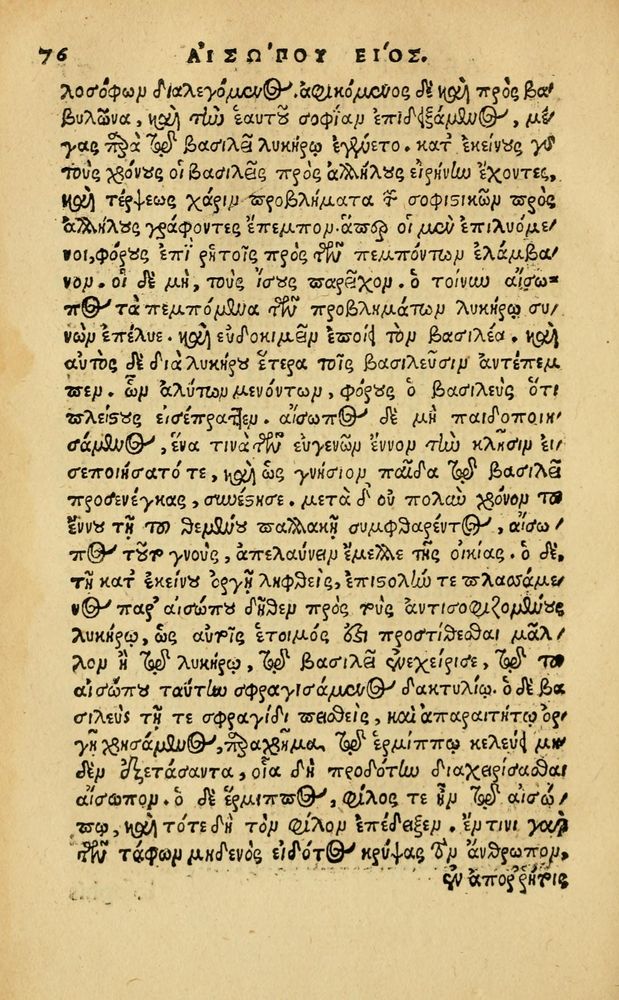 76 ΑἸΣΏΠΟΥ ΒΊΟΣ.
λοσόφων διαλεγόμενος. ἀφικόμενος δὲ καὶ πρὸς βα
βυλῶνα, καὶ τὴν ἑαυτοῦ σοφίαν ἐπιδειξάμενος, μέ/
γας παρὰ τῷ βασιλεῖ λυκήρῳ ἐγένετο. κατ ἐκείνους γὰρ
τοὺς χρόνους οἱ βασιλεῖς πρὸς ἀλλήλους εἰρήνην ἔχοντες,
καὶ τέρψεως χάριν προβλήματα τῶν σοφιστικῶν πρὸς
ἀλλήλους γράφοντες ἔπεμπον. ἅπερ οἱ μὲν ἐπιλυόμε/
νοι, φόρους ἐπὶ ῥητοῖς πρὸς τῶν πεμπόντων ἐλάμβα/
νον. οἱ δὲ μὴ, τοὺς ἴσους παρεῖχον. ὁ τοίνυν αἴσω-
πος τὰ πεμπόμενα τῶν προβλημάτων λυκήρῳ συ/
νῶν ἐπέλυε. καὶ εὐδοκιμεῖν ἐποίει τὸν βασιλέα. καὶ
αὐτὸς δὲ διὰ λυκήρου ἕτερα τοῖς βασιλεῦσιν ἀντέπεμ
πεν. ὧν ἀλύτων μενόντων, φόρους ὁ βασιλεὺς ὅτι
πλείστους εἰσέπραττεν. αἴσωπος δὲ μὴ παιδοποιη/
σάμενος, ἕνα τινὰ τῶν εὐγενῶν ἔννον τὴν κλῆσιν εἰ/
σεποιήσατό τε, καὶ ὡς γνήσιον παῖδα τῷ βασιλεῖ
προσενέγκας, συνέστησε. μετὰ δ οὐ πολὺν χρόνον τοῦ
ἔννου τῇ τοῦ θεμένου παλλακῇ συμφθαρέντος, αἴσω/
πος τοῦτο γνοὺς, ἀπελαύνειν ἔμελλε τῆς οἰκίας. ὁ δὲ,
τῇ κατ ἐκείνου ὀργῇ ληφθεὶς, ἐπιστολήν τε πλασάμε/
νος παρ αἰσώπου δῆθεν πρὸς τοὺς ἀντισοφιζομένους
λυκήρῳ, ὡς αὐτοῖς ἕτοιμός ἐστι προστίθεσθαι μᾶλ/
λον ἢ τῷ λυκήρῳ, τῷ βασιλεῖ ἐνεχείρισε, τῷ τοῦ
αἰσώπου ταύτην σφραγισάμενος δακτυλίῳ. ὁ δὲ βα
σιλεὺς τῇ τε σφραγίδι πεισθεὶς, καὶ ἀπαραιτήτῳ ὀρ/
γῇ χρησάμενος, παραχρῆμα τῷ ἑρμίππῳ κελεύει μη/
δὲν ἐξετάσαντα, οἷα δὴ προδότην διαχειρίσασθαι
αἴσωπον. ὁ δὲ ἕρμιππος, φίλος τε ἦν τῷ αἰσώ/
πῳ, καὶ τότε δὴ τὸν φίλον ἐπέδειξεν. ἔν τινι γὰρ
τῶν τάφων μηδενὸς εἰδότος κρύψας τὸν ἄνθρωπον,
ἐν ἀπορρήτοις